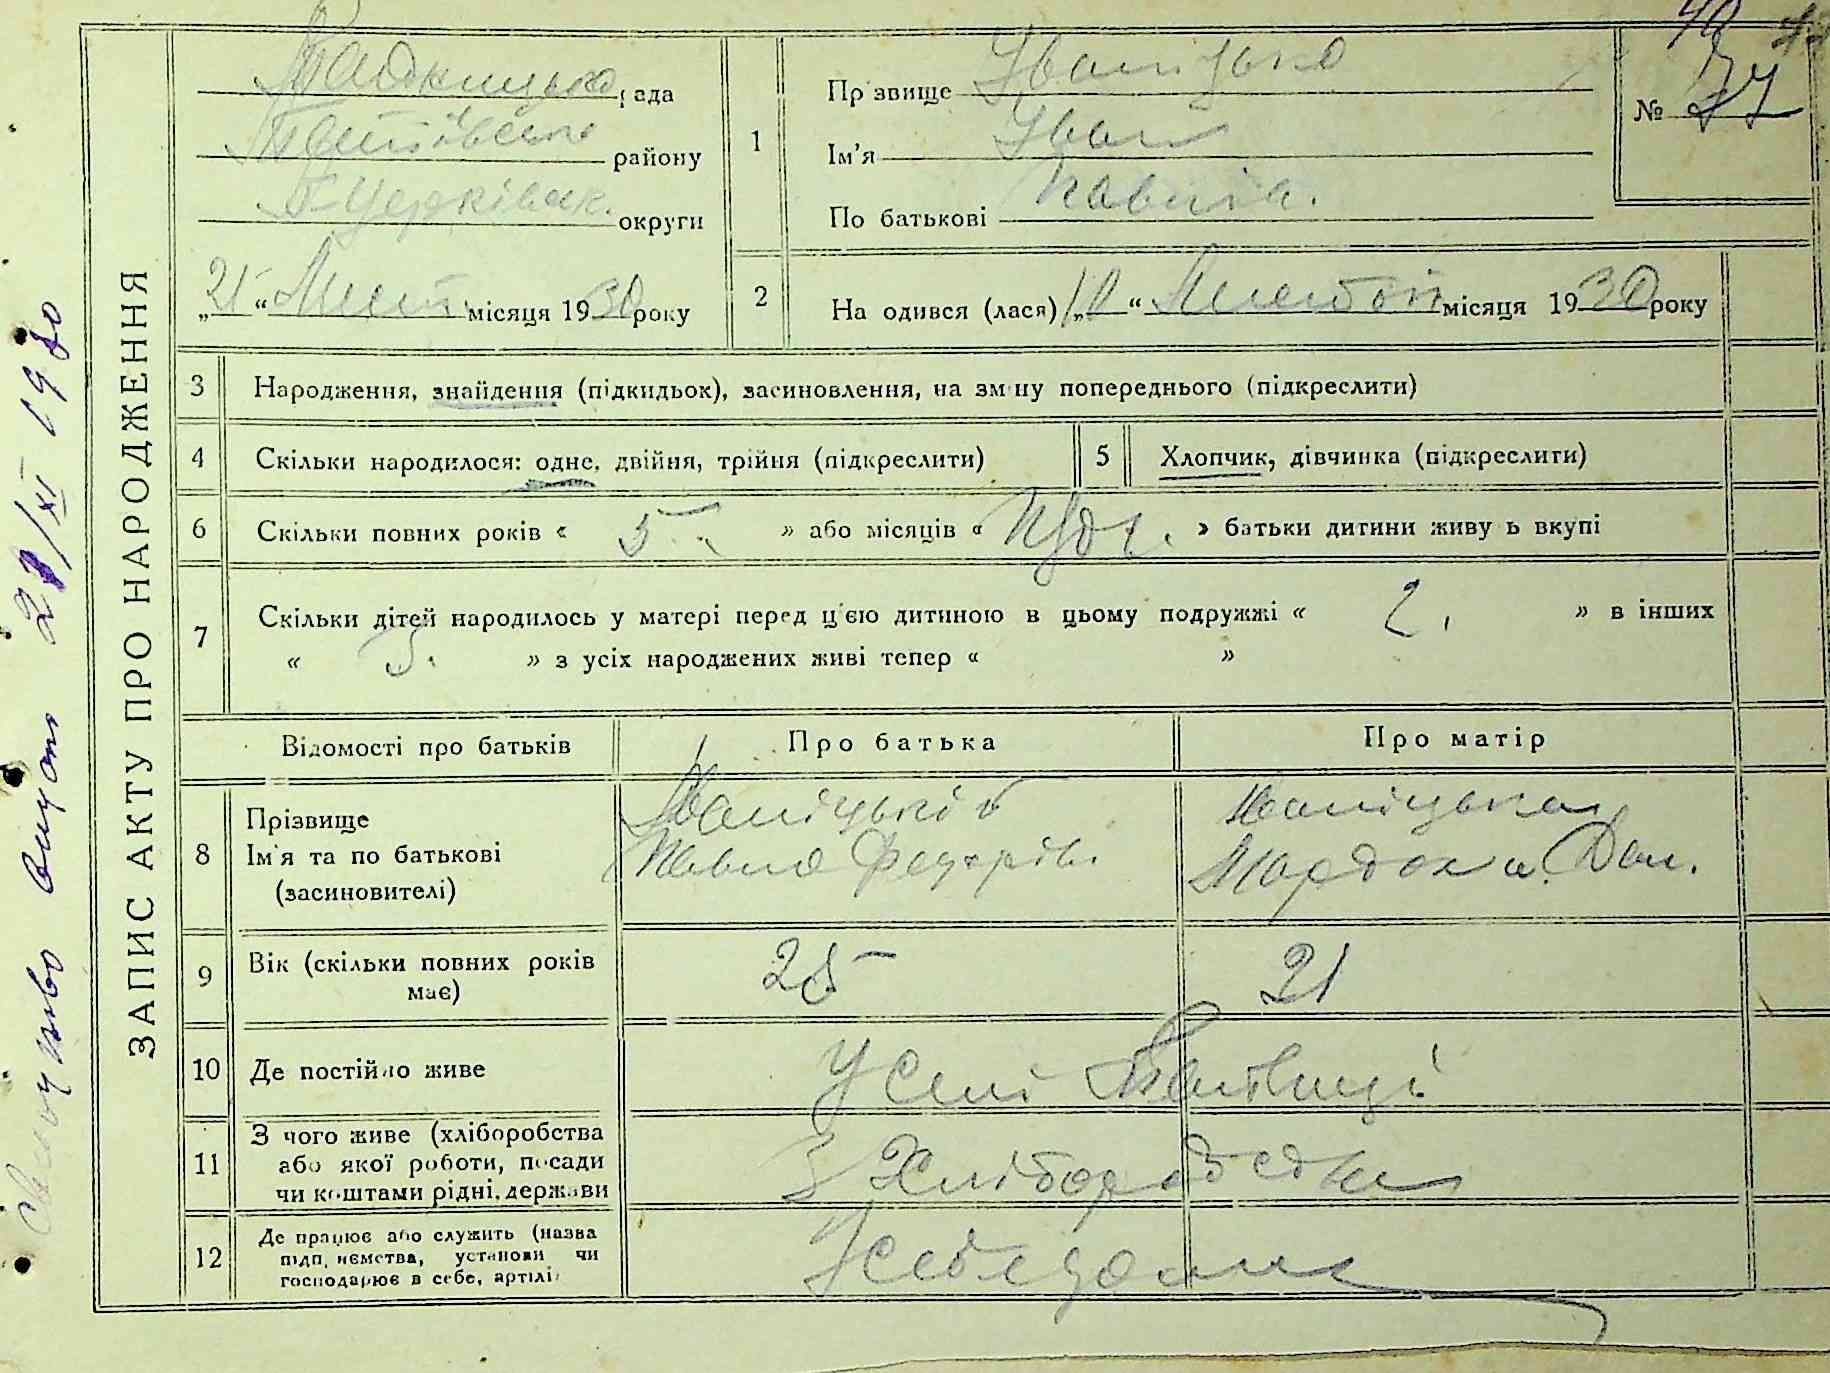 ЗАПИС АКТУ ПРО НАРОДЖЕННЯ
рада
району
Б-Церківськ. округи
„21“ Лист. місяця 1930 року
1
Прізвище Іваніцько
Ім'я Іван
По батькові Павлів.
№ 77
2
Народився (лася) „10“ Листоп місяця 1930 року
3 Народження, знайдення (підкидьок), засиновлення, на зміну попереднього (підкреслити)
4 Скільки народилося: одне, двійня, трійня (підкреслити)
5 Хлопчик, дівчинка (підкреслити)
6 Скільки повних років « 5 » або місяців « » батьки дитини живуть вкупі
7 Скільки дітей народилось у матері перед цією дитиною в цьому подружжі « 2. » в інших
« 3. » з усіх народжених живі тепер « »
Відомості про батьків
Про батька
Про матір
8 Прізвище
Ім'я та по батькові
(засиновителі)
Іваніцькій
Павло Федорів.
Іваніцька
Дан.
9 Вік (скільки повних років
має)
25
21
10 Де постійно живе
У селі
11 З чого живе (хліборобства
або якої роботи, посади
чи коштами рідні, держави
З Хліборобства
12 Де працює або служить (назва
підприємства, установи чи
господарює в себе, артілі)
23/XI 1930